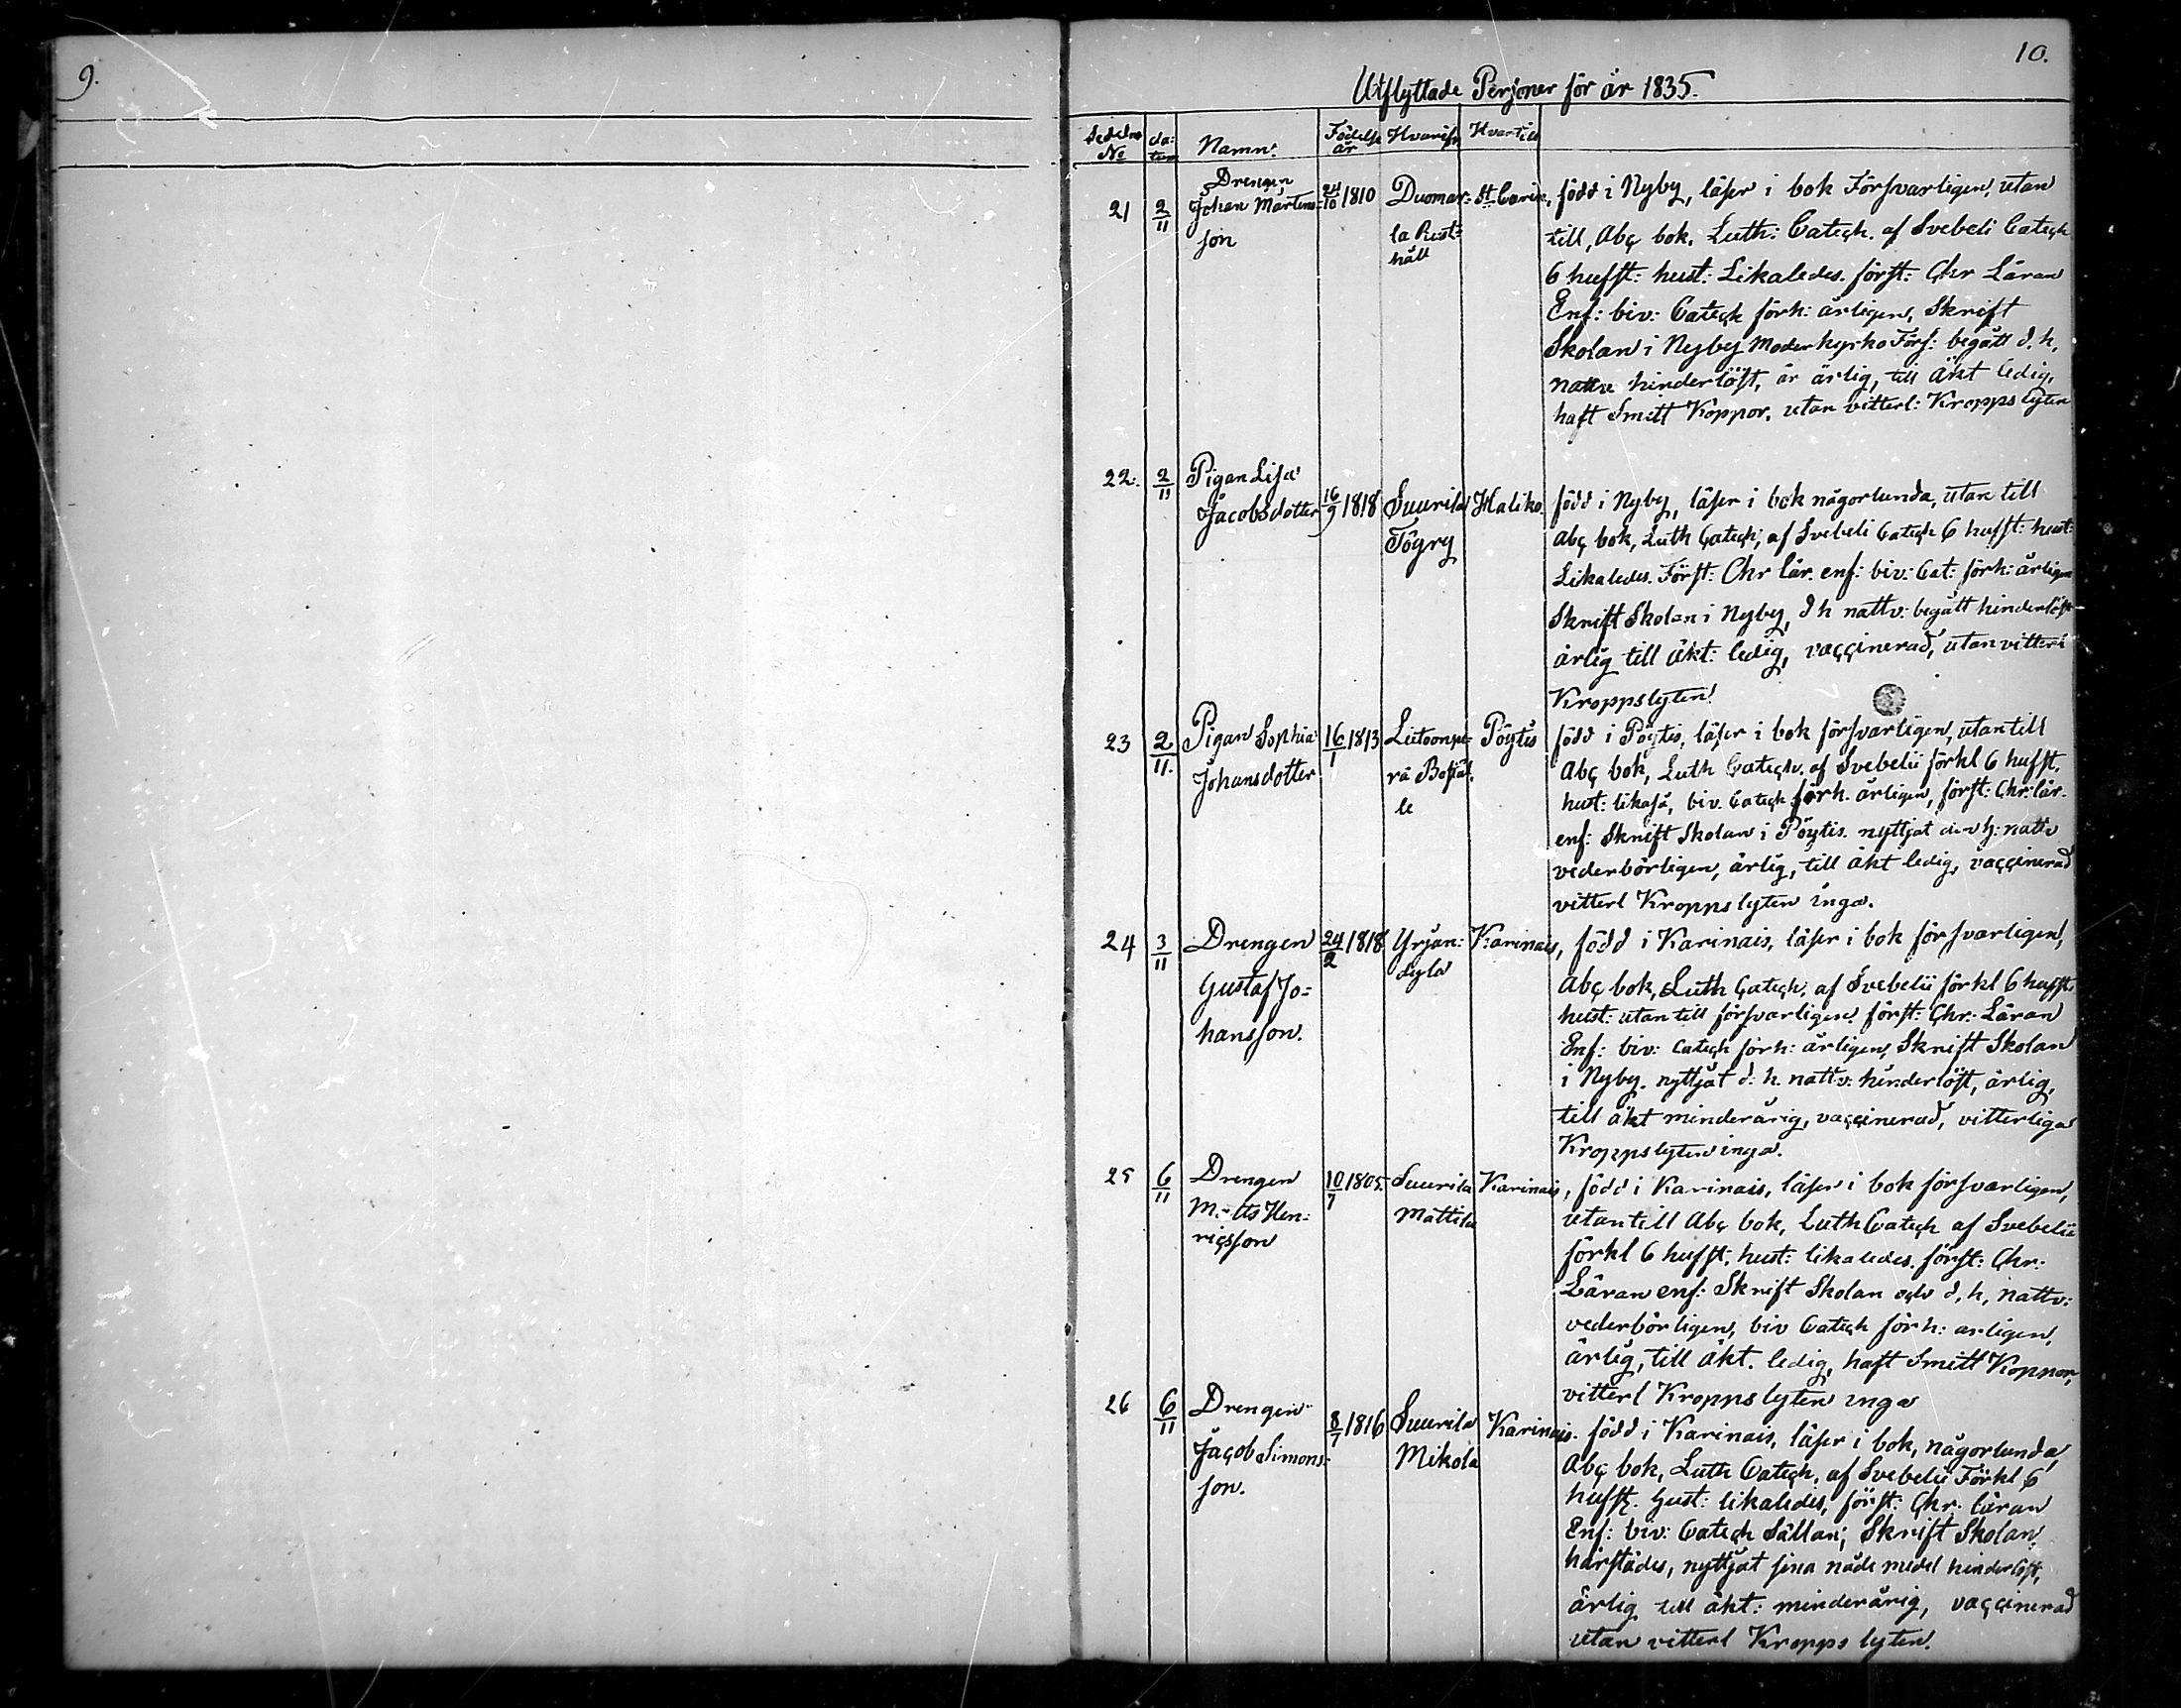 9.
10.
Utflyttade Personer för år 1835.
Sedelns No da: tum Namn. Födelse år Hvarifr. Hvartill
21 2/11 Drengen Johan Mårtens= son 24/10 1810 Duomar= la Rust= håll St Carin,
född i Nyby, läser i bok Försvarligen, utan
till, Abç bok, Luth: Cateçh. af Svebeli Cateçh
6 hufst: hust: Likaledes. först: Çhr Läran
Enf: biv: Cateçh förh: årligen, Skrift
Skolan i Nyby Moderkyrko Förs: begått d. h,
nattv hinderlöst, är ärlig, till Äkt ledig,
haft Smitt Koppor, utan vitterl: Kroppslyten
22. 2/11 Pigan Lisa Jacobsdotter 16/9 1818 Suurila Tögry Haliko.
född i Nyby, läser i bok någorlunda, utan till
Abç bok, Luth Çateçh; af Svebeli Cateçh 6 hufst: hust:
Likaledes. Först: Chr lär. enf: biv: Cat: förh: årligen
Skrift Skolan i Nyby, d h nattv: begått hinderlöst
ärlig till äkt: ledig, vaççinerad, utan vitterl
Kroppslyten!
23 2/11. Pigan Sophia Johansdotter 16/1 1813 Lietoonpe= rä Bostäl. le Pöytis
född i Pöytis, läser i bok försvarligen, utan till
Abç bok, Luth Cateçh. af Svebelii förkl 6 hufst.
hust: likaså, biv. Cateçh förh. årligen, först: Çhr: lär.
enf: Skrift Skolan i Pöytis. nyttjat den h: nattv
vederbörligen, ärlig, till äkt ledig, vaççinerad
vitterl Kroppslyten inga.
24 3/11 Drengen Gustaf Jo= hansson. 24/2 1818 Yrjän: Karinais,
född i Karinais, läser i bok försvarligen,
Abç bok, Luth Çateçh, af Svebelii förkl 6 hufst.
hust: utan till försvarligen. först: Çhr: Läran
Enf: biv: Cateçh förh: årligen, Skrift Skolan
i Nyby. nyttjat d: h. nattv: hinderlöst, ärlig,
till äkt minderårig, vaççinerad, vitterliga
Kroppslyten inga.
25 6/11 Drengen Matts Hen= riçsson 10/7 1805. Suurila Mattila Karinais,
född i Karinais, läser i bok försvarligen,
utantill Abç bok, Luth Cateçh af Svebelii
förkl 6 hufst; hust: likaledes. först: Çhr:
Läran enf: Skrift Skolan oçh d, h, nattv:
vederbörligen, biv Cateçh förh: årligen,
ärlig, till äkt. ledig, haft Smitt Koppor,
vitterl Kroppslyten inga
26 6/11 Drengen Jaçob Simons= son. 8/7 1816 Suurila Mikola Karinais.
född i Karinais, läser i bok, någorlunda,
Abç bok, Luth Cateçh, af Svebelii Förkl 6
hufst. hust: likaledes, först: Çhr. läran
Enf: biv: Cateçh Sällan; Skrift Skolan
härstädes, nyttjat sina nåde medel hinderlöst,
ärlig till äkt: minderårig, vaççinerad
utan vitterl Kropps lyten.